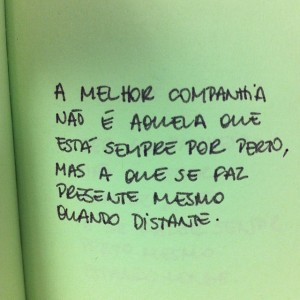 A MELHOR COMPANHIA
NÃO É AQUELA QUE
ESTÁ SEMPRE POR PERTO,
MAS A QUE SE FAZ
PRESENTE MESMO
QUANDO DISTANTE.